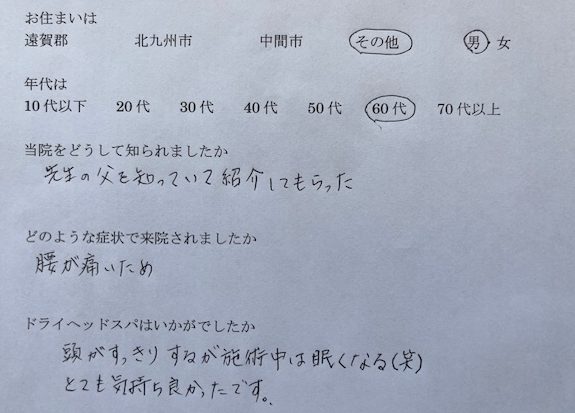 お住まいは
遠賀郡 北九州市 中間市 その他 男・女
年代は
10代以下 20代 30代 40代 50代 60代 70代以上
当院をどうして知られましたか
先生の父を知っていて紹介してもらった
どのような症状で来院されましたか
腰が痛いため
ドライヘッドスパはいかがでしたか
頭がすっきりするが施術中は眠くなる(笑)
とても気持ち良かったです。